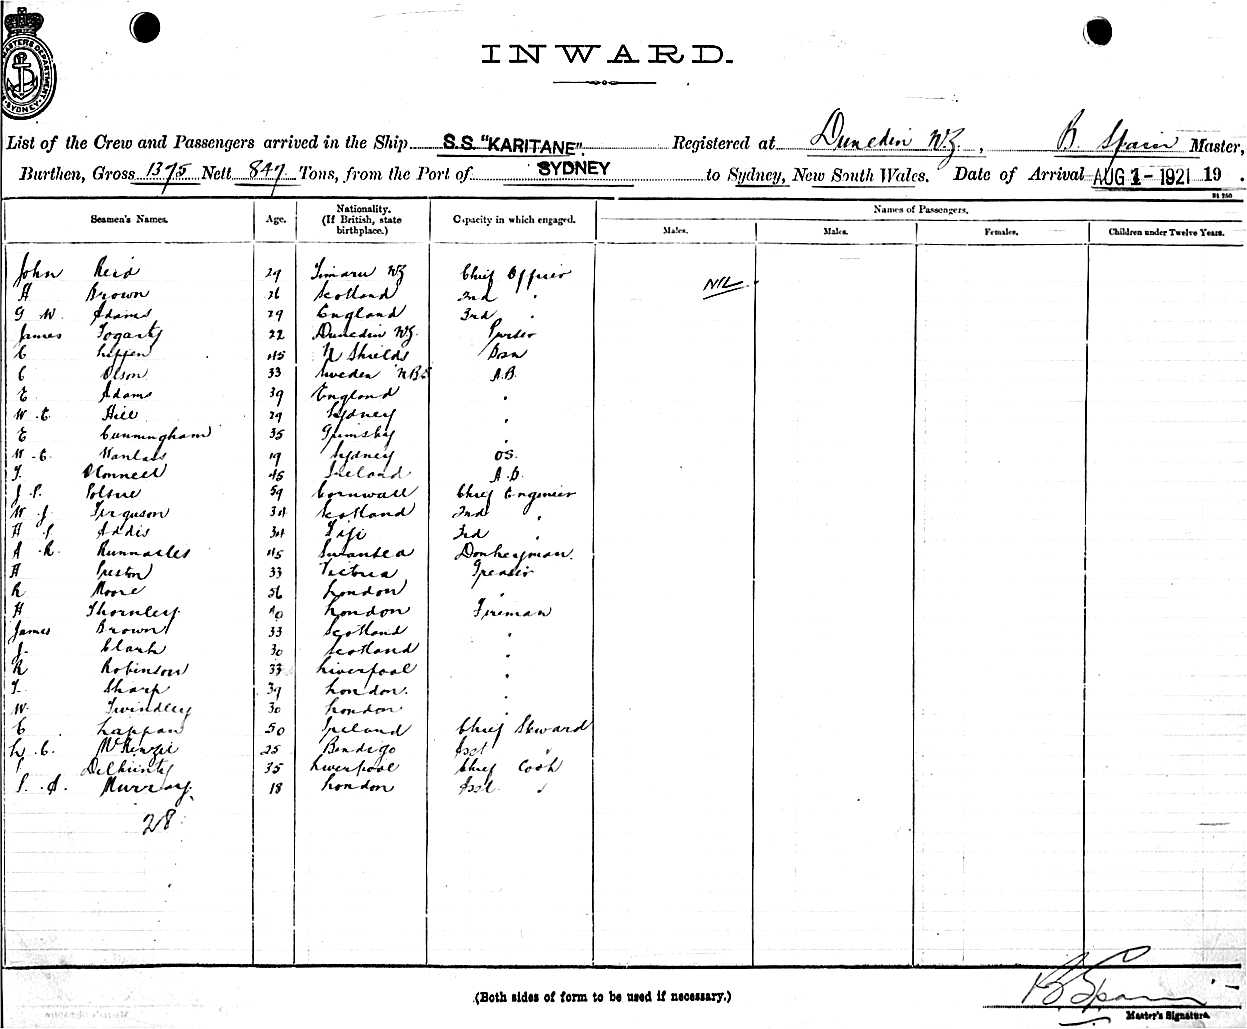 INWARD.
List of the Crew and Passengers arrived in the Ship S.S. "KARITANE". Registered at Dunedin NZ., B. Spain Master,
Burthen, Gross 1375 Nett 847 Tons, from the Port of SYDNEY to Sydney, New South Wales. Date of Arrival AUG 1 - 1921 19 .
Names of Passengers.
Seamen's Names. Age. Nationality. (If British, state birthplace.) Capacity in which engaged. Males. Males. Females. Children under Twelve Years.
John Reid 29 Timaru NZ Chief Officer NIL
A Brown 26 Scotland 2nd "
G W. Adams 29 England 3rd "
James Fogarty 22 Dunedin NZ.
C 45 N Shields Bsn
C Olson 33 Sweden A.B.
E Adams 39 England "
W. C. Hill 29 Sydney "
E Cunningham 35 Grimsby "
W. C. 19 Sydney OS.
T. O'Connell 45 Ireland A.B.
J. P. Polsue 59 Cornwall Chief Engineer
W. J. Ferguson 34 Scotland 2nd "
H P Addis 34 Fiji 3rd "
A. R. Runnacles 45 Swansea Donkeyman.
A Preston 33 Victoria Greaser
R Moore 56 London "
H Thornley. 40 London Fireman
James Brown 33 Scotland "
J. Clark 30 Scotland "
R Robinson 33 Liverpool "
T. Sharp 39 London. "
W. Twindley 30 London. "
C. Lappan 50 Ireland Chief Steward
L. C. McKenzie 25 Bendigo Asst "
35 Liverpool Chief Cook
P. A. Murray. 18 London Asst. "
28
(Both sides of form to be used if necessary.)
B Spain
Master's Signature.